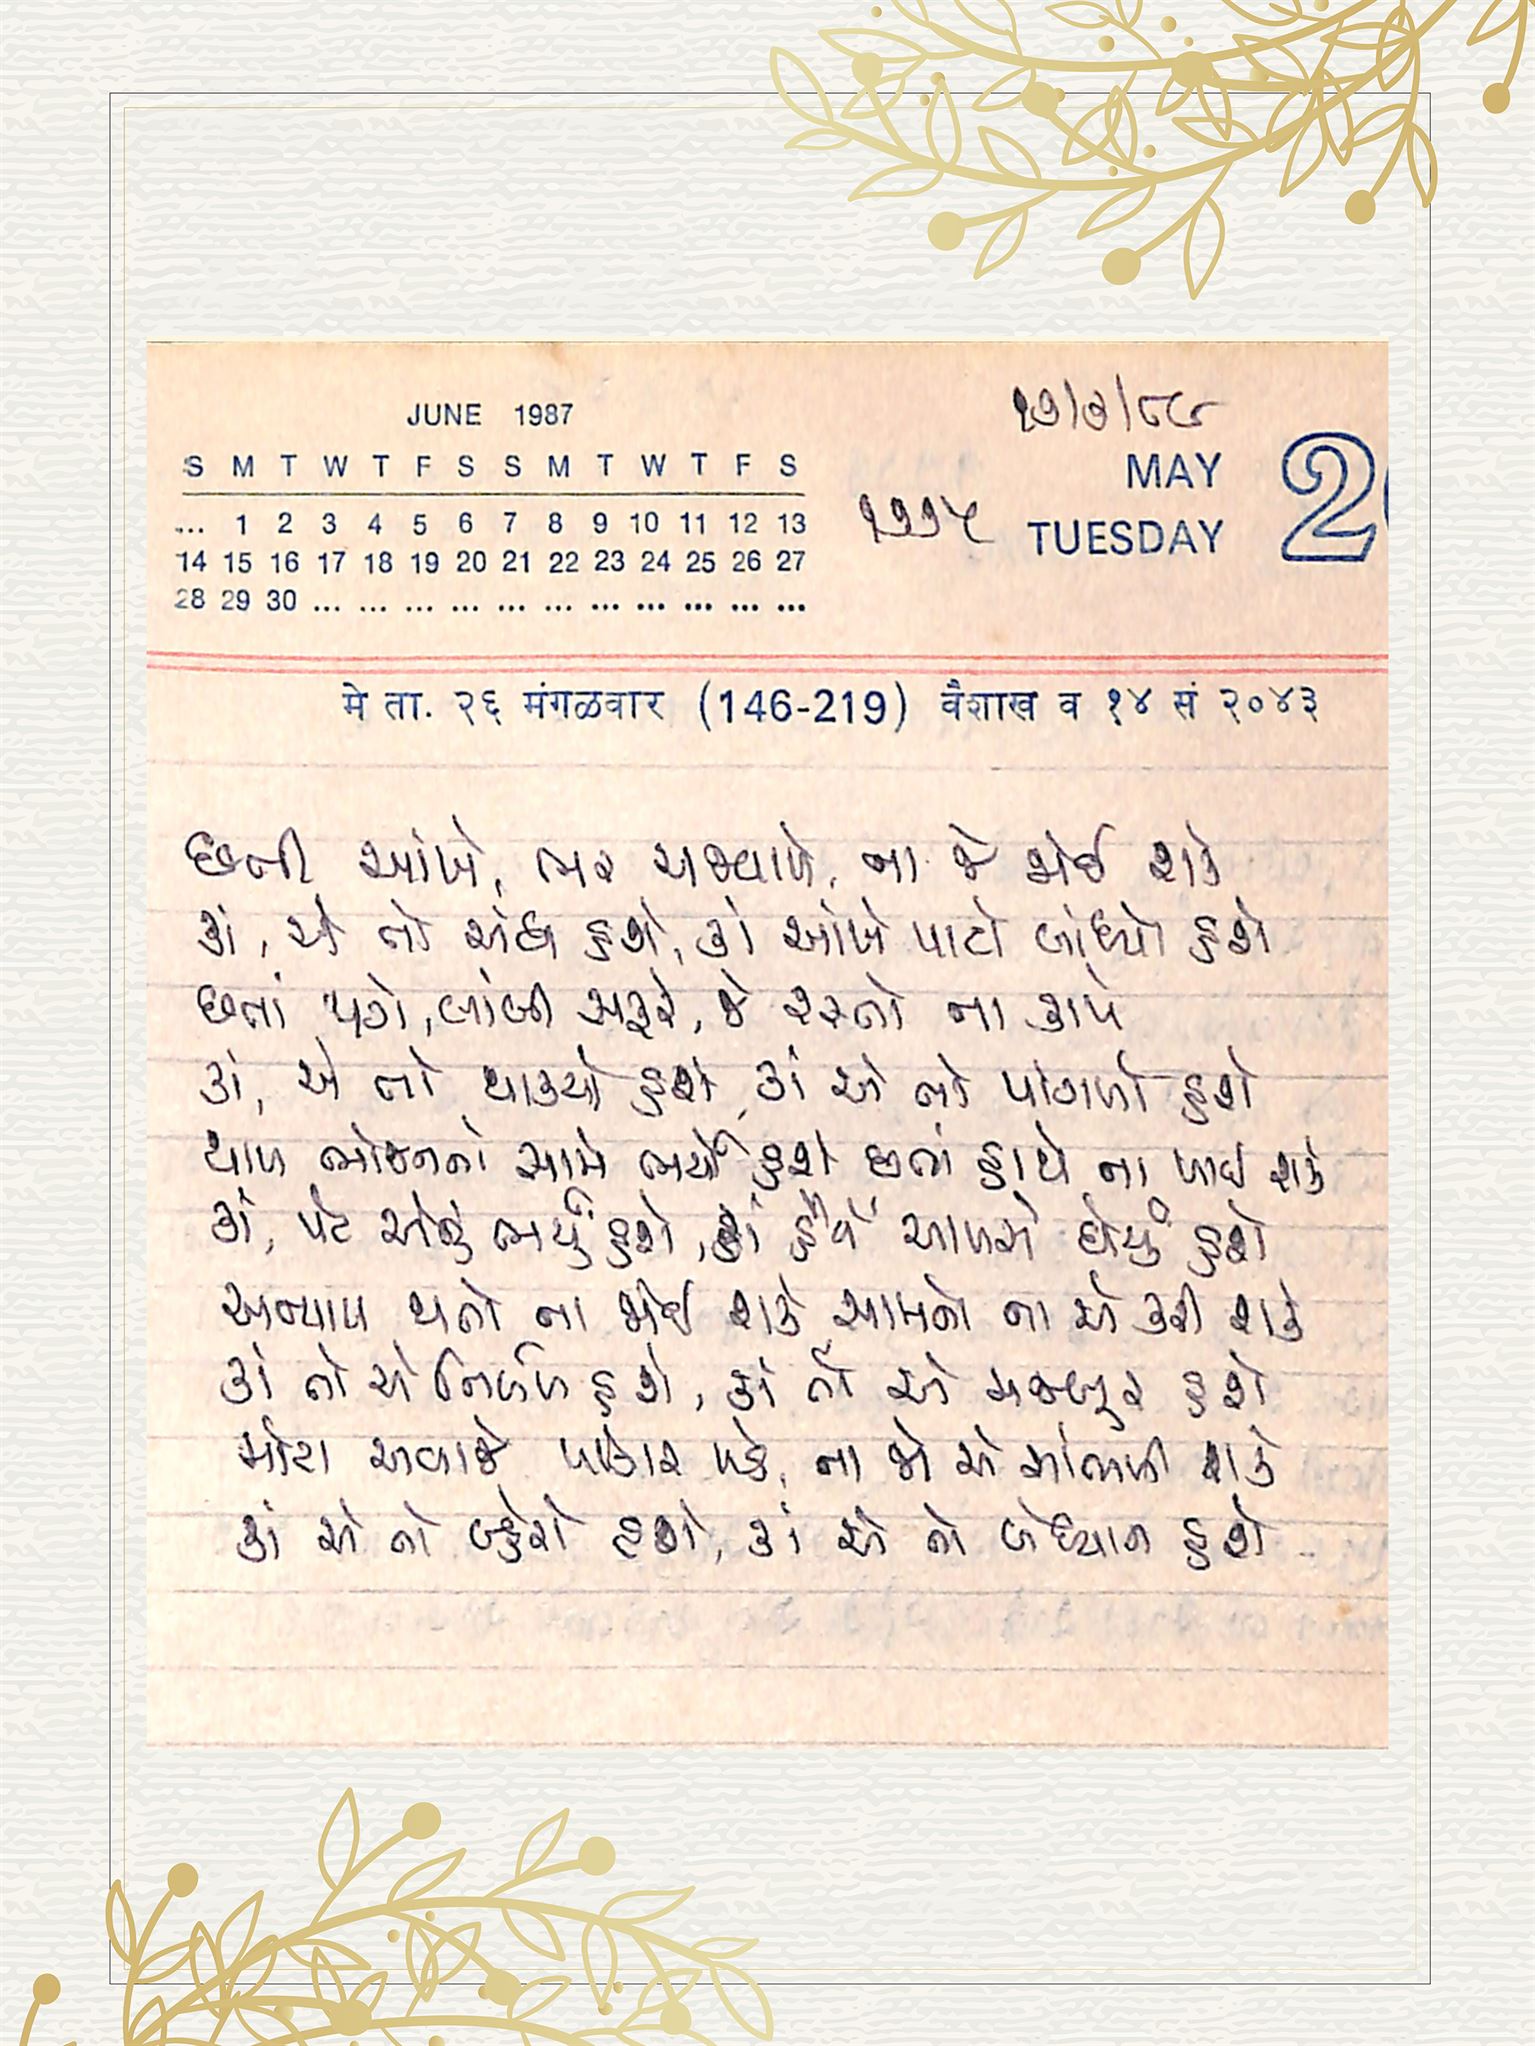 ૧૭/૭/૮૯
JUNE 1987
MAY
S M T W T F S S M T W T F S
૧૧૧૫
TUESDAY
2
... 1 2 3 4 5 6 7 8 9 10 11 12 13
14 15 16 17 18 19 20 21 22 23 24 25 26 27
28 29 30 ... ... ... ... ... ... ... ... ... ... ...
मे ता. २६ मंगळवार (146-219) वैशाख व १४ सं २०४३
છતી આંખે, ભર અજવાળે, ના જે જોઈ શકે
કાં, એ તો અંધ હશે, કાં આંખે પાટો બાંધ્યો હશે
છતાં પગે, લાંબી સફરે, જે રસ્તો ના કાપે
કાં, એ તો થાક્યો હશે, કાં એ તો પાંગળો હશે
થાળ ભોજનનો સામે ભર્યો હશે છતાં હાથે ના ખાઈ શકે
કાં, પેટ એનું ભર્યું હશે, કાં હૈયે આળસે ઘેર્યું હશે
અન્યાય થતો ના જોઈ શકે સામનો ના એ કરી શકે
કાં તો એ નિર્બળ હશે, કાં તો એ મજબૂર હશે
મોટા અવાજે પોકાર પડે, ના જો એ સાંભળી શકે
કાં એ તો બહેરો હશે, કાં એ તો બેધ્યાન હશે